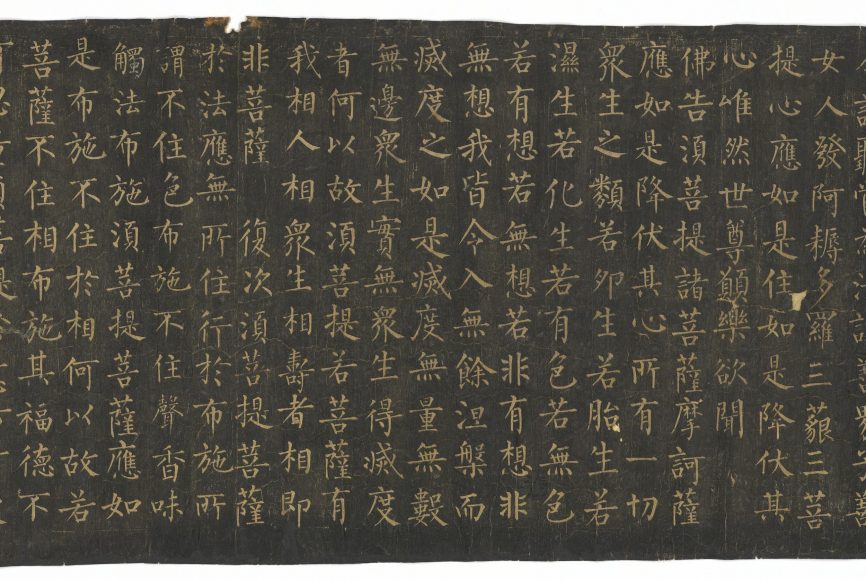 女人發阿耨多羅三藐三菩
提心應如是住如是降伏其
心唯然世尊願樂欲聞
佛告湏菩提諸菩薩摩訶薩
應如是降伏其心所有一切
衆生之類若卵生若胎生若
濕生若化生若有色若無色
若有想若無想若非有想非
無想我皆令入無餘涅槃而
滅度之如是滅度無量無數
無邊衆生實無衆生得滅度
者何以故湏菩提若菩薩有
我相人相衆生相壽者相即
非菩薩 復次湏菩提菩薩
於法應無所住行於布施所
謂不住色布施不住聲香味
觸法布施湏菩提菩薩應如
是布施不住於相何以故若
菩薩不住相布施其福德不